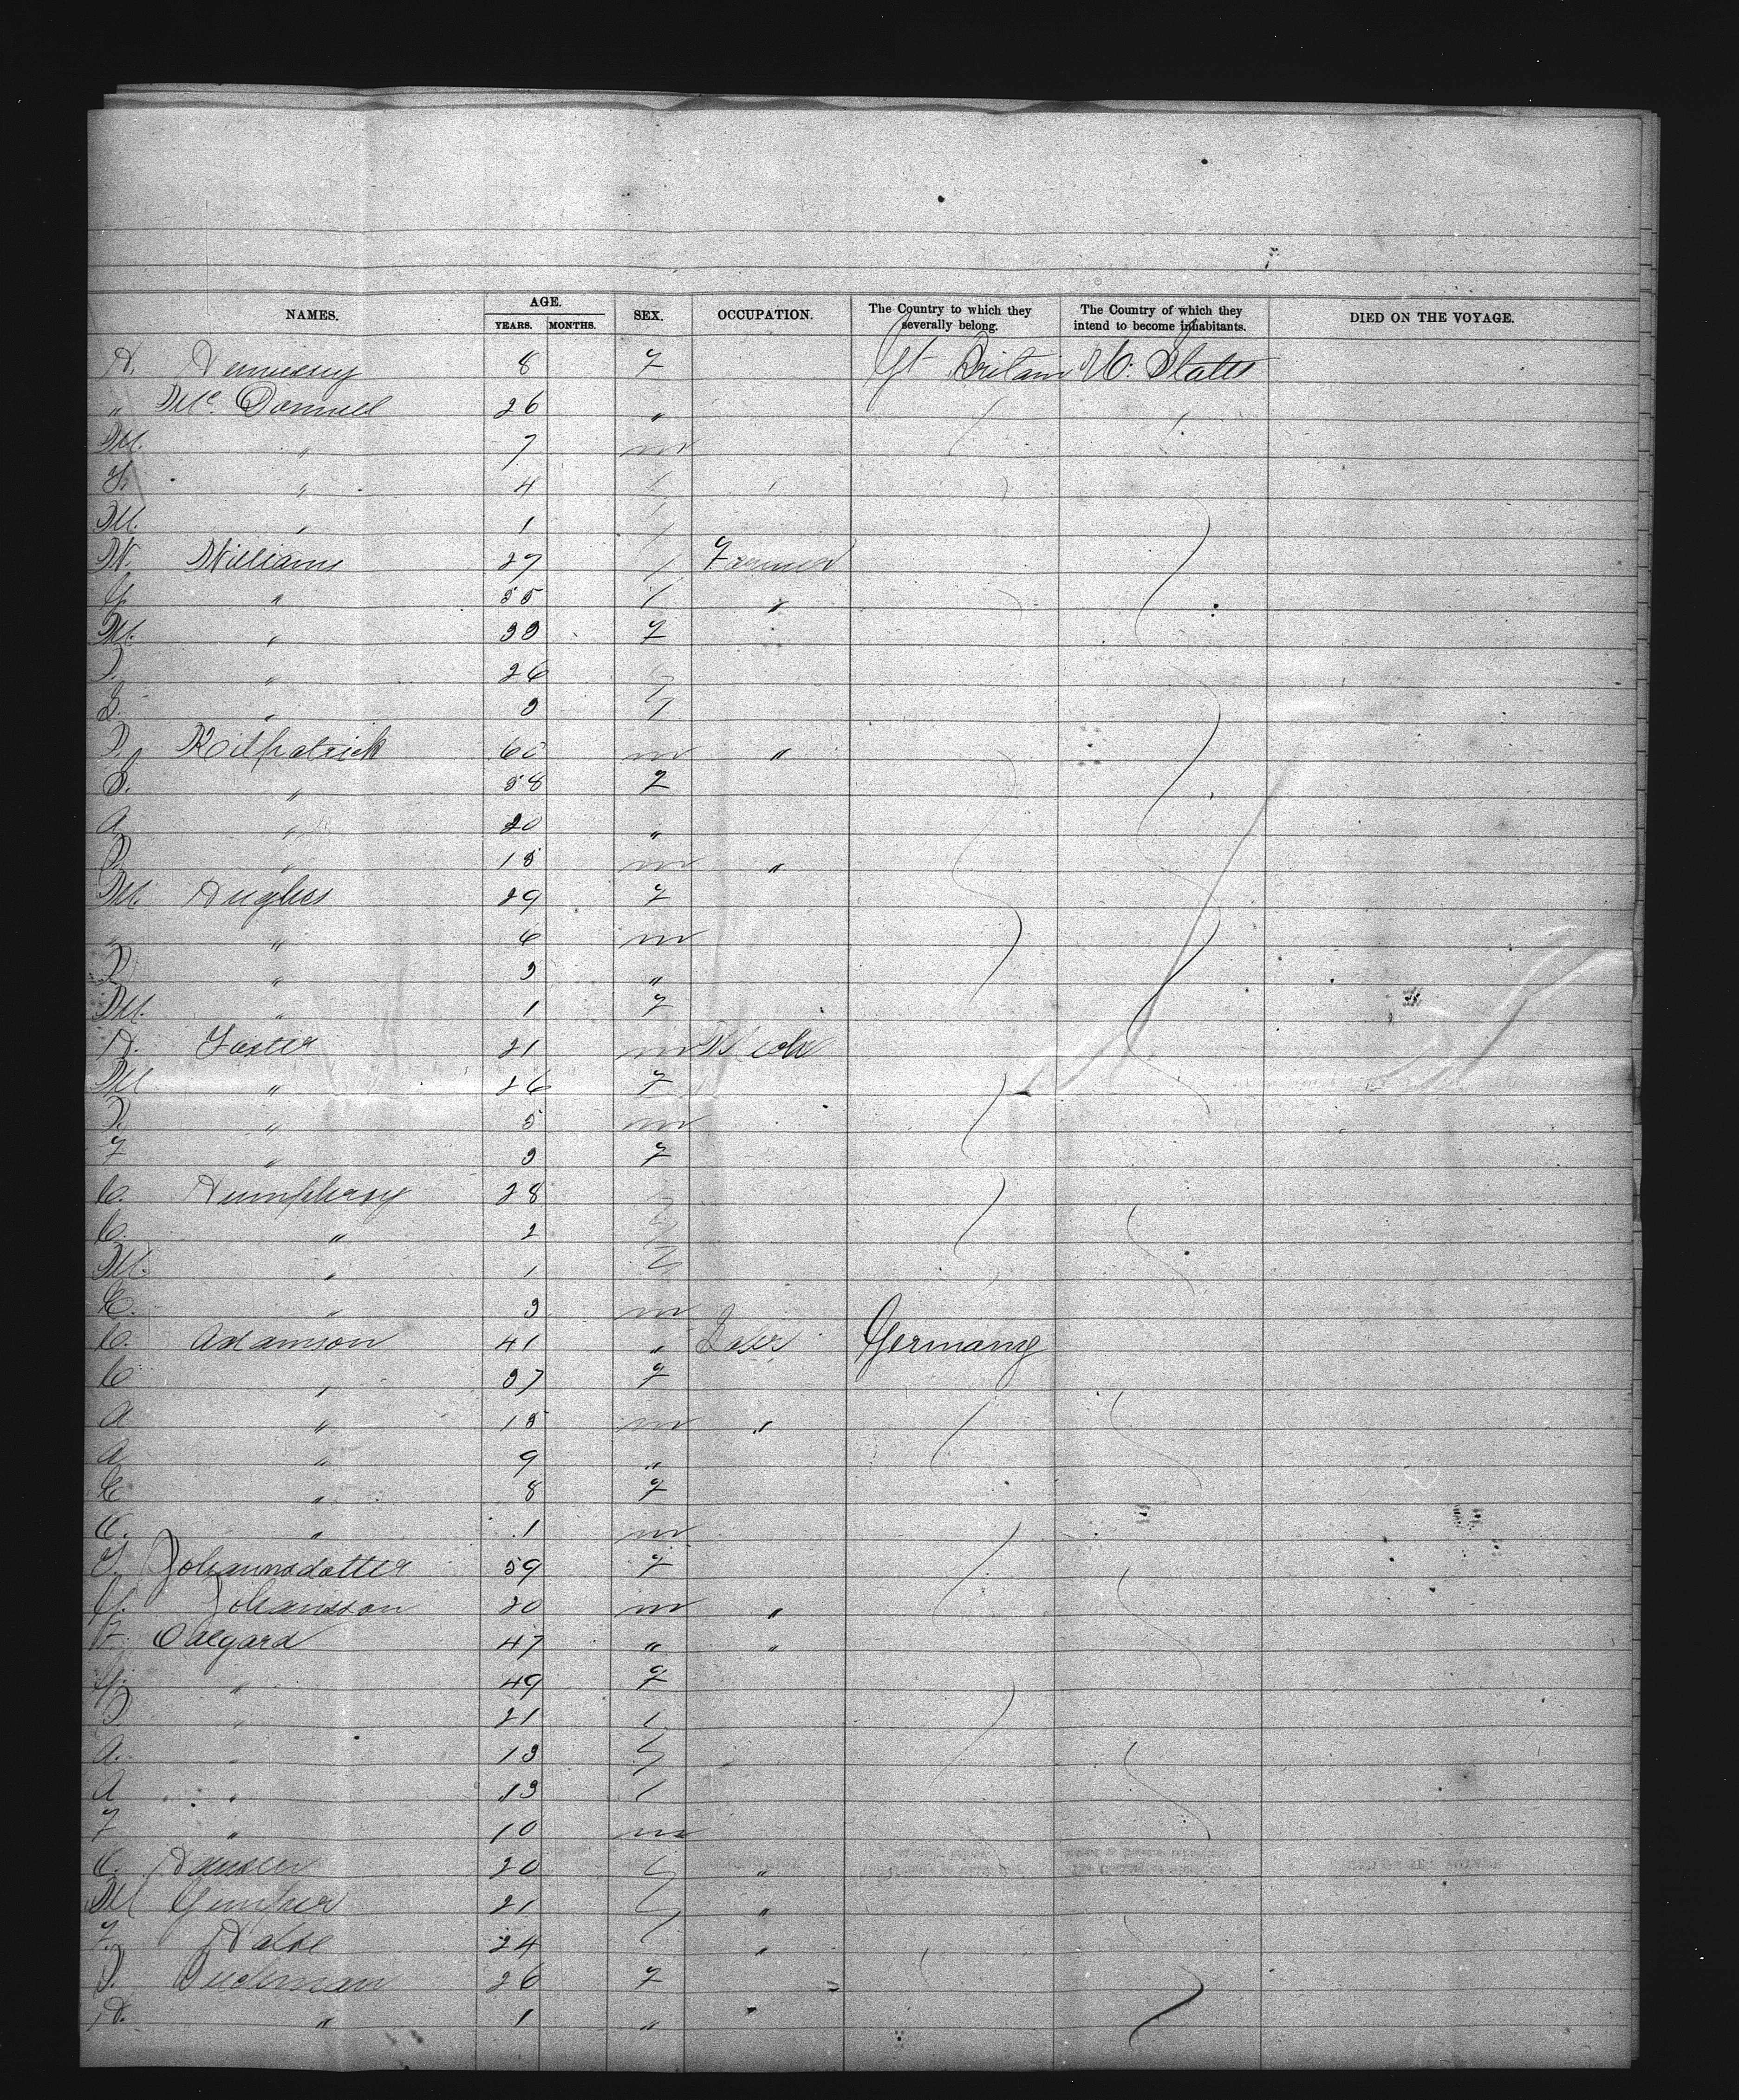 NAMES. AGE. SEX. OCCUPATION. The Country to which they severally belong. The Country of which they intend to become inhabitants. DIED ON THE VOYAGE.
YEARS. MONTHS.
H. Hennessy 8 F Gt Britain U. States
" McDonnell 26 "
M. " 7 m
" 4
M. " 1
W. Williams 27 Farmer
G. " 55 "
M. " 33 F
" 26
S. " 3
Kilpatrick 60 m "
S. " 58 F
A. " 20 "
" 15 m "
M. Hughes 29 F
" " 6 m
" 3 "
M. " 1 F
H. Foster 21 m
M " 26 F
" 5 m
F " 3 F
C. Humphrey 28
C. " 2
M. " 1
E. " 3 m
C. Adamson 41 " Labr Germany
C " 37 F
A " 15 m "
A " 9 "
E " 8 F
C. " 1 m
Johannsdotter 59 F
G. Johansson 20 m "
F. Oalgard 47 " "
G. " 49 F
" 21
A. " 13
A " 13
F " 10 m
C. Hansen 20 "
M 21 "
F. 24 "
26 F
H. " 1 "